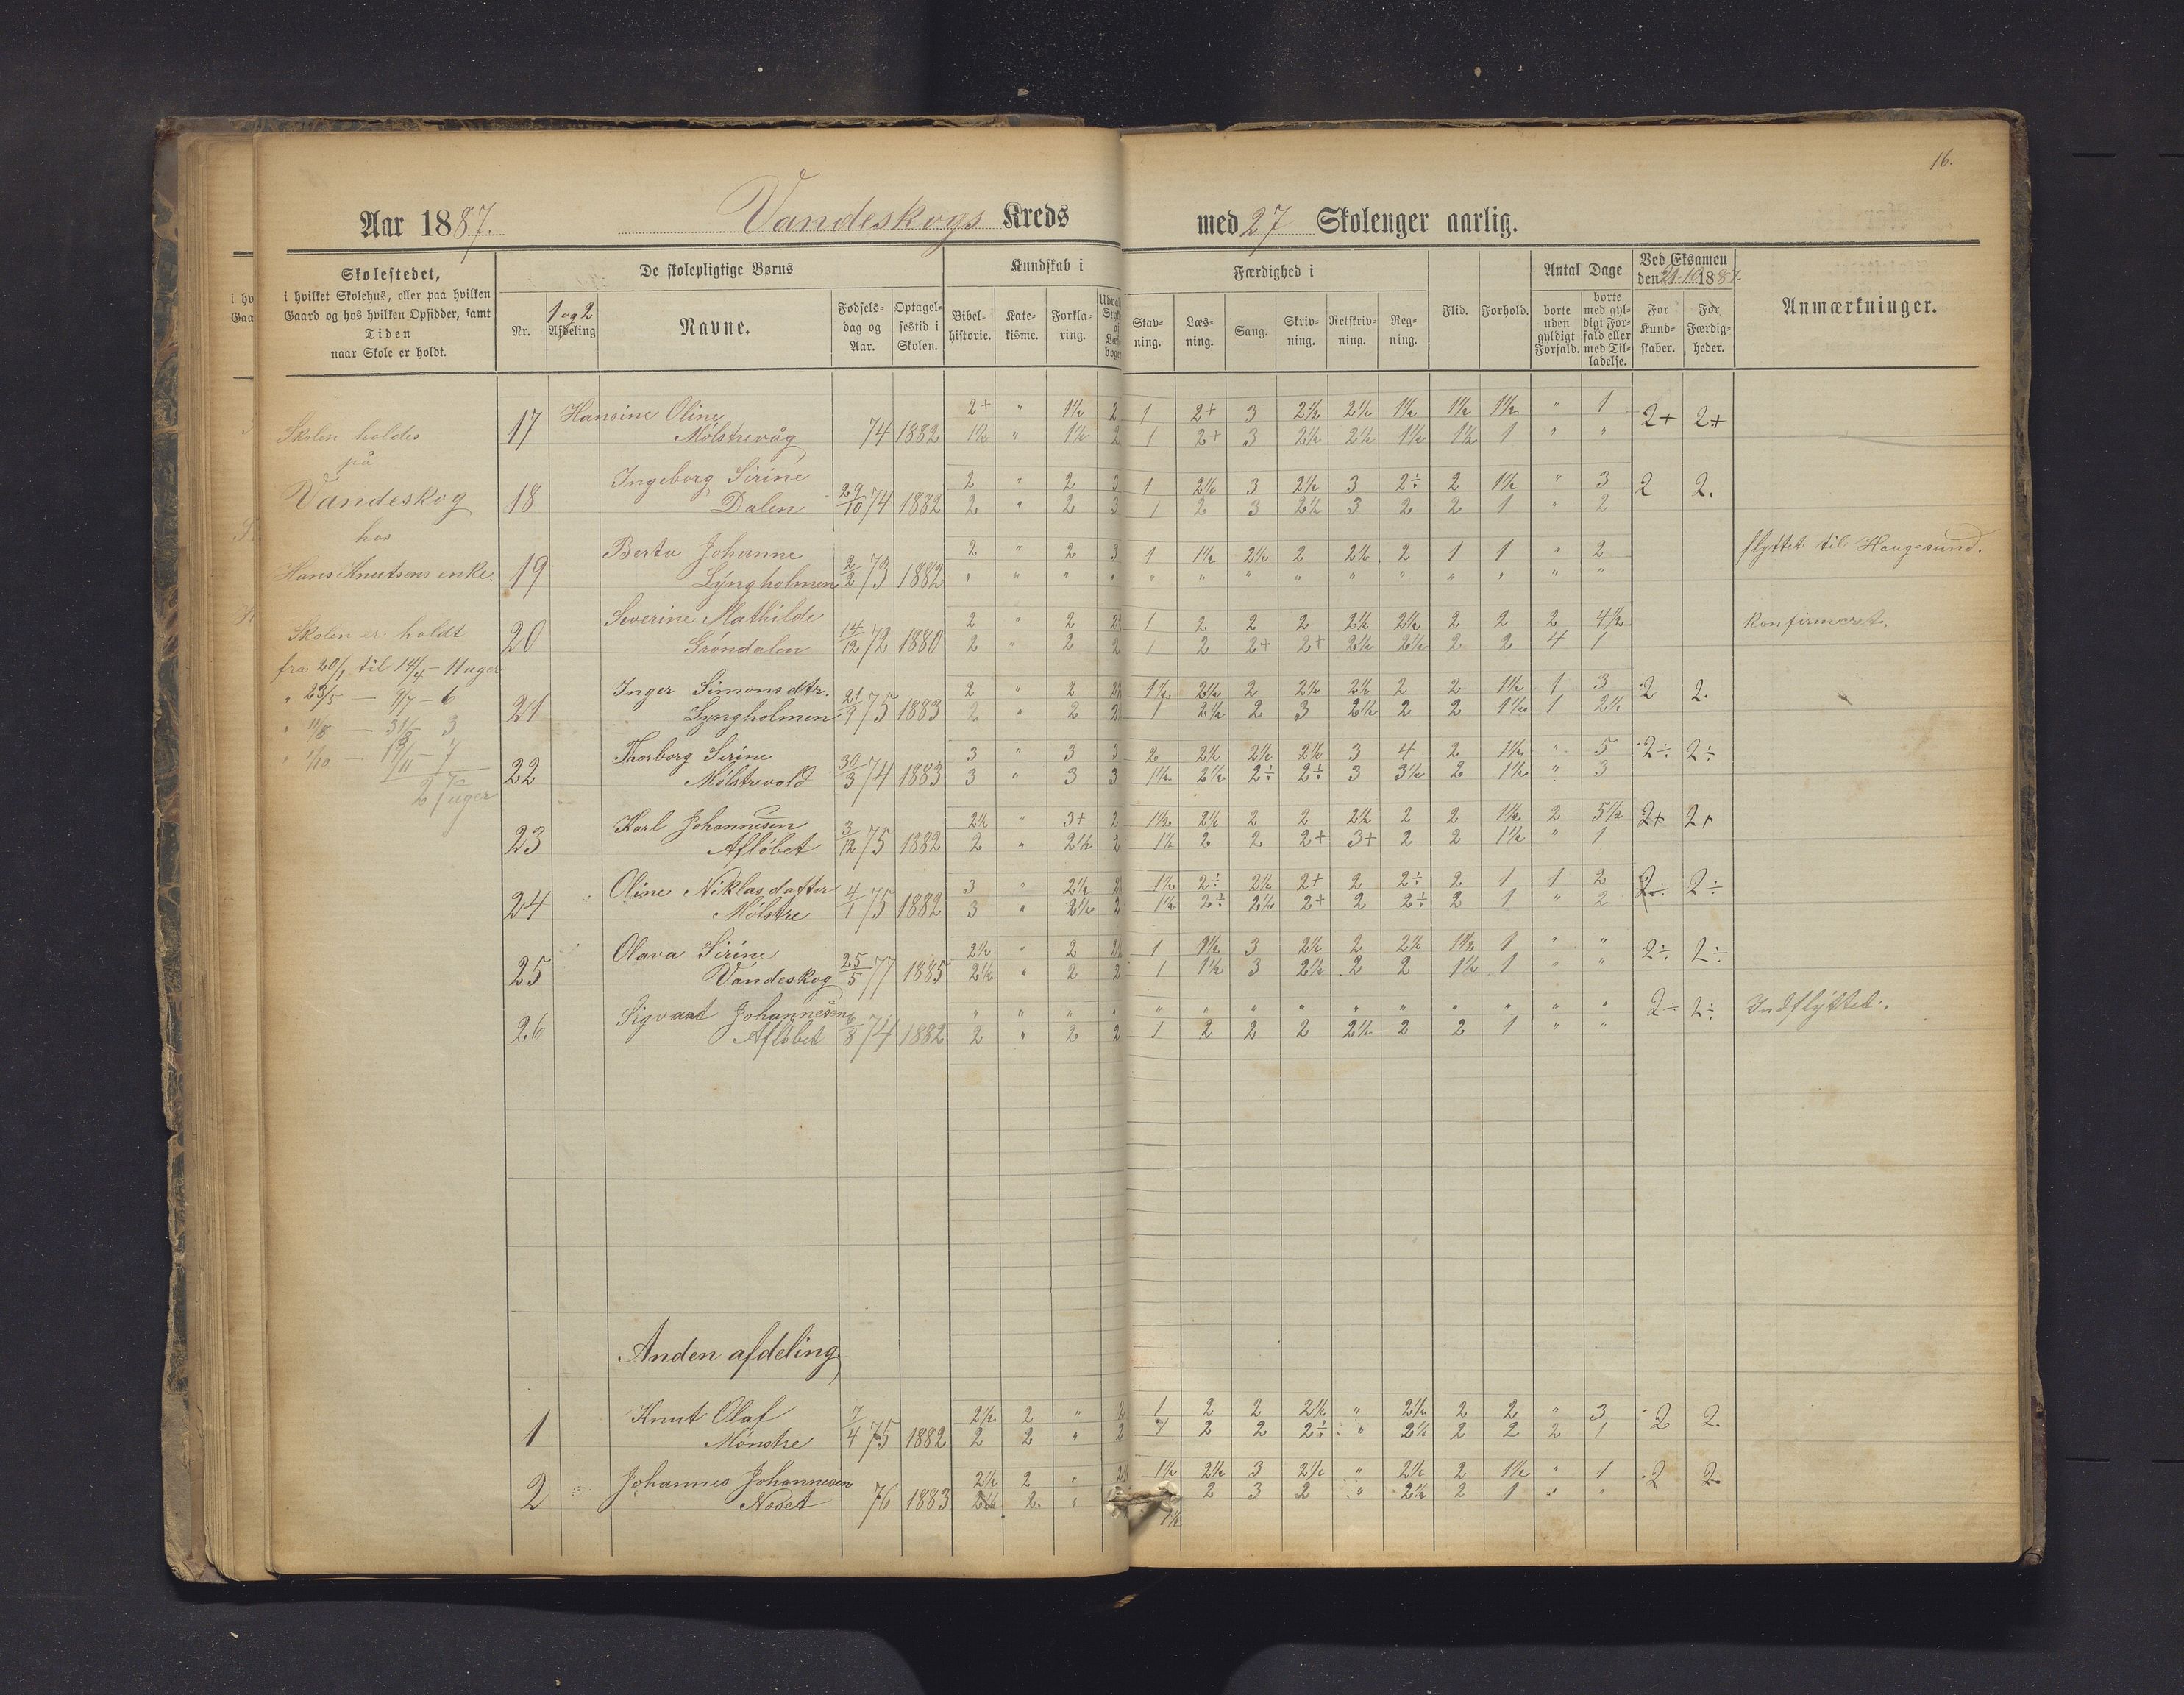 16.
Aar 1887. Vandeskogs Kreds med 27 Skoleuger aarlig.
Skolestedet,
i hvilket Skolehus, eller paa hvilken
Gaard og hos hvilken Opsidder, samt
Tiden
naar Skole er holdt.
De skolepligtige Børns
Nr.
1 og 2
Afdeling
Navne.
Fødsels-
dag og
Aar.
Optagel-
sestid i
Skolen.
Kundskab i
Bibel-
historie.
Kate-
kisme.
Forkla-
ring.
Færdighed i
Stav-
ning.
Læs-
ning.
Sang.
Skriv-
ning.
Retskriv-
ning.
Reg-
ning.
Flid.
Forhold.
Antal Dage
borte
uden
gyldigt
Forfald.
borte
med gyl-
digt For-
fald eller
med Til-
ladelse.
Ved Eksamen
1887.
For
Kund-
skaber.
For
Færdig-
heder.
Anmærkninger.
Skolen holdes
på
Vandeskog
hos
Hans Knutsens enke.
Skolen er holdt
fra 20/1 til 14/4 - 11 uger
" 23/5 - 9/7 - 6
" 11/8 - 31/8 3
" 1/10 - 19/11 - 7
27 uger
17 Hansine Oline 2+ " 1½ 2 1 2+ 3 2½ 2½ 1½ 1½ 1½ " 1 2+ 2+
Mølstrevåg 74 1882 1½ " 1½ 2 1 2+ 3 2½ 2½ 1½ 1½ 1 " "
18 Ingeborg Sirine 2 " 2 3 1 2½ 3 2½ 3 2÷ 2 1½ " 3 2 2.
Dalen 29/10 74 1882 2 " 2 3 1 2 3 2½ 3 2 2 1 " 2
19 Berta Johanne 2 " 2 3 1 1½ 2½ 2 2½ 2 1 1 " 2 flyttet til Haugesund.
Lyngholmen 2/2 73 1882 " " " " " " " " " " " " " "
20 Severine Mathilde 2 " 2 2 1 2 2 2 2½ 2½ 2 2 2 4½ Konfirmeret.
Grøndalen 14/12 72 1880 2 " 2 2 1 2 2+ 2+ 2½ 2½ 2 2 4 1
21 Inger Simonsdtr. 2 " 2 2 1½ 2½ 2 2½ 2½ 2 2 1½ 1 3 2 2.
Lyngholmen 21/9 75 1883 2 " 2 2 1 2½ 2 3 2½ 2 2 1½ 1 2½
22 Thorborg Sirine 3 " 3 3 2 2½ 2½ 2½ 3 4 2 1½ " 5 2÷ 2÷
Mølstrevold 30/3 74 1883 3 " 3 3 1½ 2½ 2÷ 2÷ 3 3½ 2 1½ " 3
23 Karl Johannesen 2½ " 3+ 2 1½ 2½ 2 2 2½ 2 2 1½ 2 5½ 2+ 2+
Afløbet 3/12 75 1882 2 " 2½ 2 1½ 2 2 2+ 3+ 2 2 1½ " 1
24 Oline Niklasdatter 3 " 2½ 2 1½ 2÷ 2½ 2+ 2 2÷ 2 1 1 2 2÷ 2÷
Mølstre 4/1 75 1882 3 " 2½ 2 1½ 2÷ 2½ 2+ 2 2÷ 2 1 " 2
25 Olava Sirine 2½ " 2 2½ 1 1½ 3 2½ 2 2½ 1½ 1 " " 2÷ 2÷
Vandeskog 25/5 77 1885 2½ " 2 2 1 1½ 3 2½ 2 2 1½ 1 " "
26 Sigvart Johannesen " " " " " " " " " " " " " " 2÷ 2÷ Indflyttet.
Afløbet 6/8 74 1882 2 " 2 2 1 2 2 2 2½ 2 2 1 " "
Anden afdeling
1 Knut Olaf 2½ 2 " 2 1 2 2 2½ " 2½ 2 2 " 3 2 2.
Mønstre 7/4 75 1882 2 2 " 2 1 2 2 2÷ " 2½ 2 2 2 1
2 Johannes Johannesen 2½ 2 " 2½ 1½ 2½ 3 2½ " 2½ 2 1½ " 1 2 2.
76 1883 2½ 2. " 2 3 2 " 2½ 2 1 " "
1½